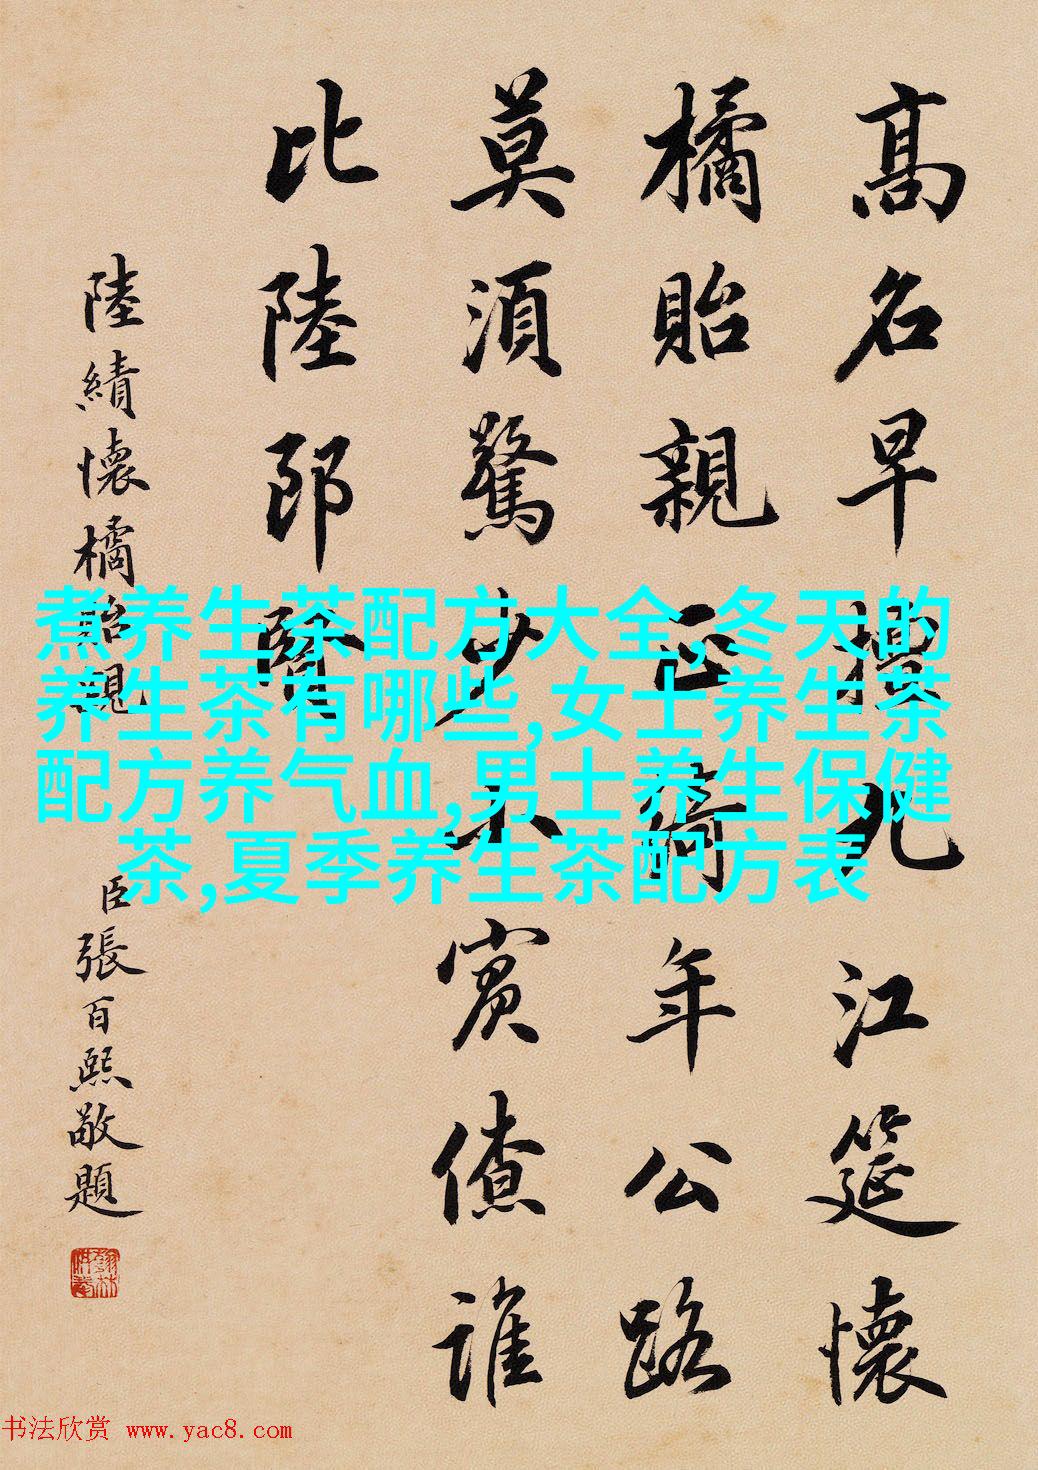 高名早擅九江筵懷
橘貽親正綺年公路
莫須驚少小賓僚誰
比陸郎賢
陸績懷橘貽親
臣張百熙敬題
煮养生茶配方大全,冬天的
养生茶有哪些,女士养生茶
配方养气血,男士养生保健
茶,夏季养生茶配方表
书法欣赏 www.yac8.com